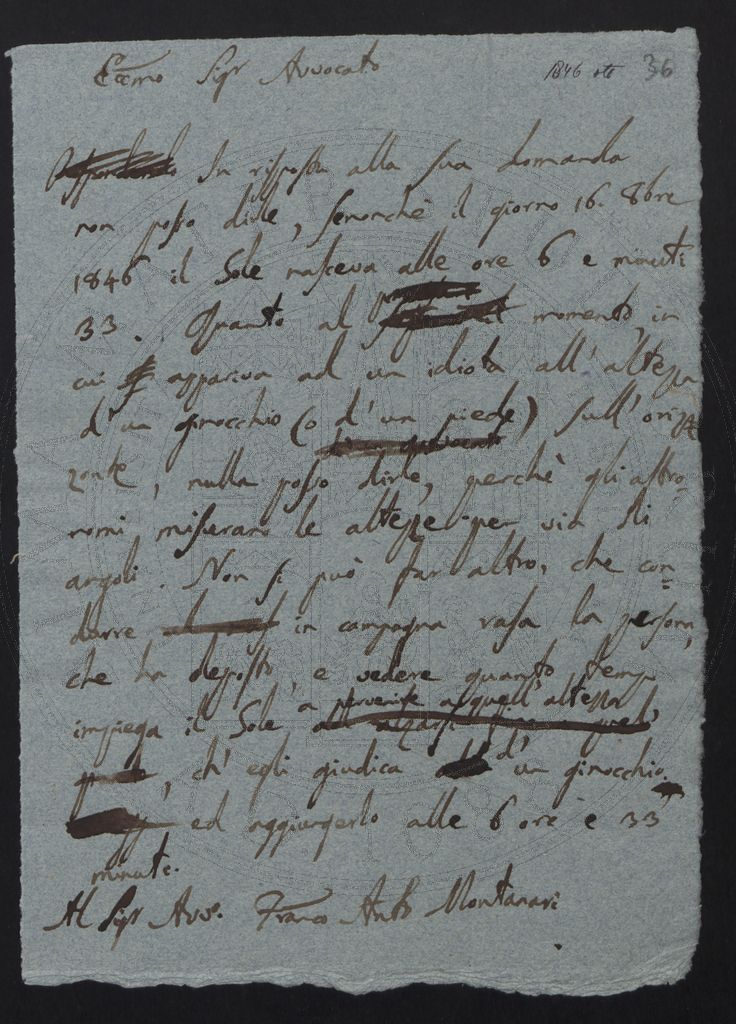 Eccmo Sigr Avvocato
1846 ott 36
Rispondendo In risposta alla sua domanda
non posso dirle, senonchè il giorno 16. 8bre
1846 il Sole nasceva alle ore 6 e minuti
33. Quanto al momento, in
cui appariva ad un idiota all'altezza
d'un ginocchio (o d'un piede) sull'oriz=
zonte, nulla posso dirle, perchè gli astro=
nomi misurano le altezze per via di
angoli. Non si può far altro, che con=
durre in campagna rasa la persona,
che ha deposto, e vedere quanto tempo
impiega il Sole a pervenire a quell'altezza
, ch'egli giudica d'un ginocchio,
ed aggiungerlo alle 6 ore e 33
minuti.
Al Sigr Avv. Franco Anto Montanari